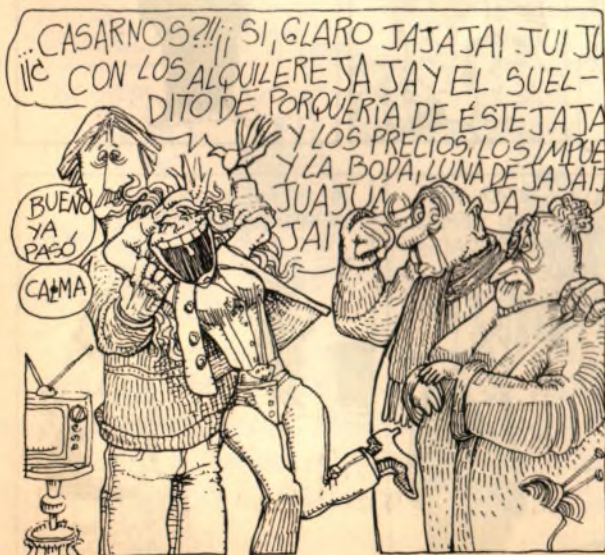 ¿¡¡CASARNOS?!!¡¡ SI, GLARO JAJAJAI JUI JU
CON LOS ALQUILERE JA JA Y EL SUEL-
DITO DE PORQUERÍA DE ÉSTE JAJA
Y LOS PRECIOS, LOS IMPUE
Y LA BODA, LUNA DE JAJAIJ
JUAJUA JA J
JAIJ
BUENO
YA
PASÓ
CALMA